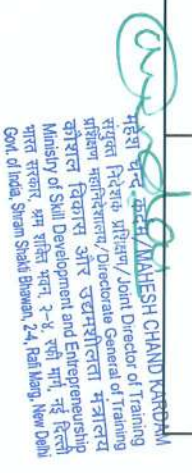 महेश चन्द कर्दम/MAHESH CHAND KARDAM
संयुक्त निदेशक प्रशिक्षण/ Joint Director of Training
प्रशिक्षण महानिदेशालय /Directorate General of Training
कौशल विकास और उद्यमशीलता मंत्रालय
Ministry of Skill Development and Entrepreneurship
भारत सरकार, श्रम शक्ति भवन, २-४, रफी मार्ग, नई दिल्ली
Govt. of India, Shram Shakti Bhawan, 2-4, Rafi Marg, New Delhi